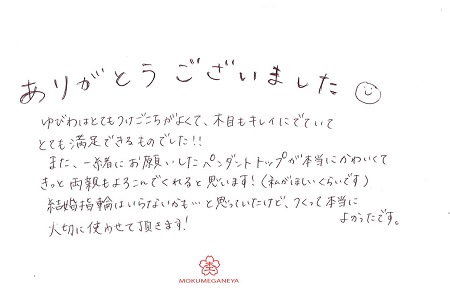 ありがとうございました
ゆびわはとてもつけごこちがよくて、木目もキレイにでていて
とても満足できるものでした!!
また、一緒にお願いしたペンダントトップが本当にかわいくて
きっと両親もよろこんでくれると思います!(私がほしいくらいです)
結婚指輪はいらないかも…と思っていたけど、つくって本当に
よかったです。
大切に使わせて頂きます!
MOKUMEGANEYA